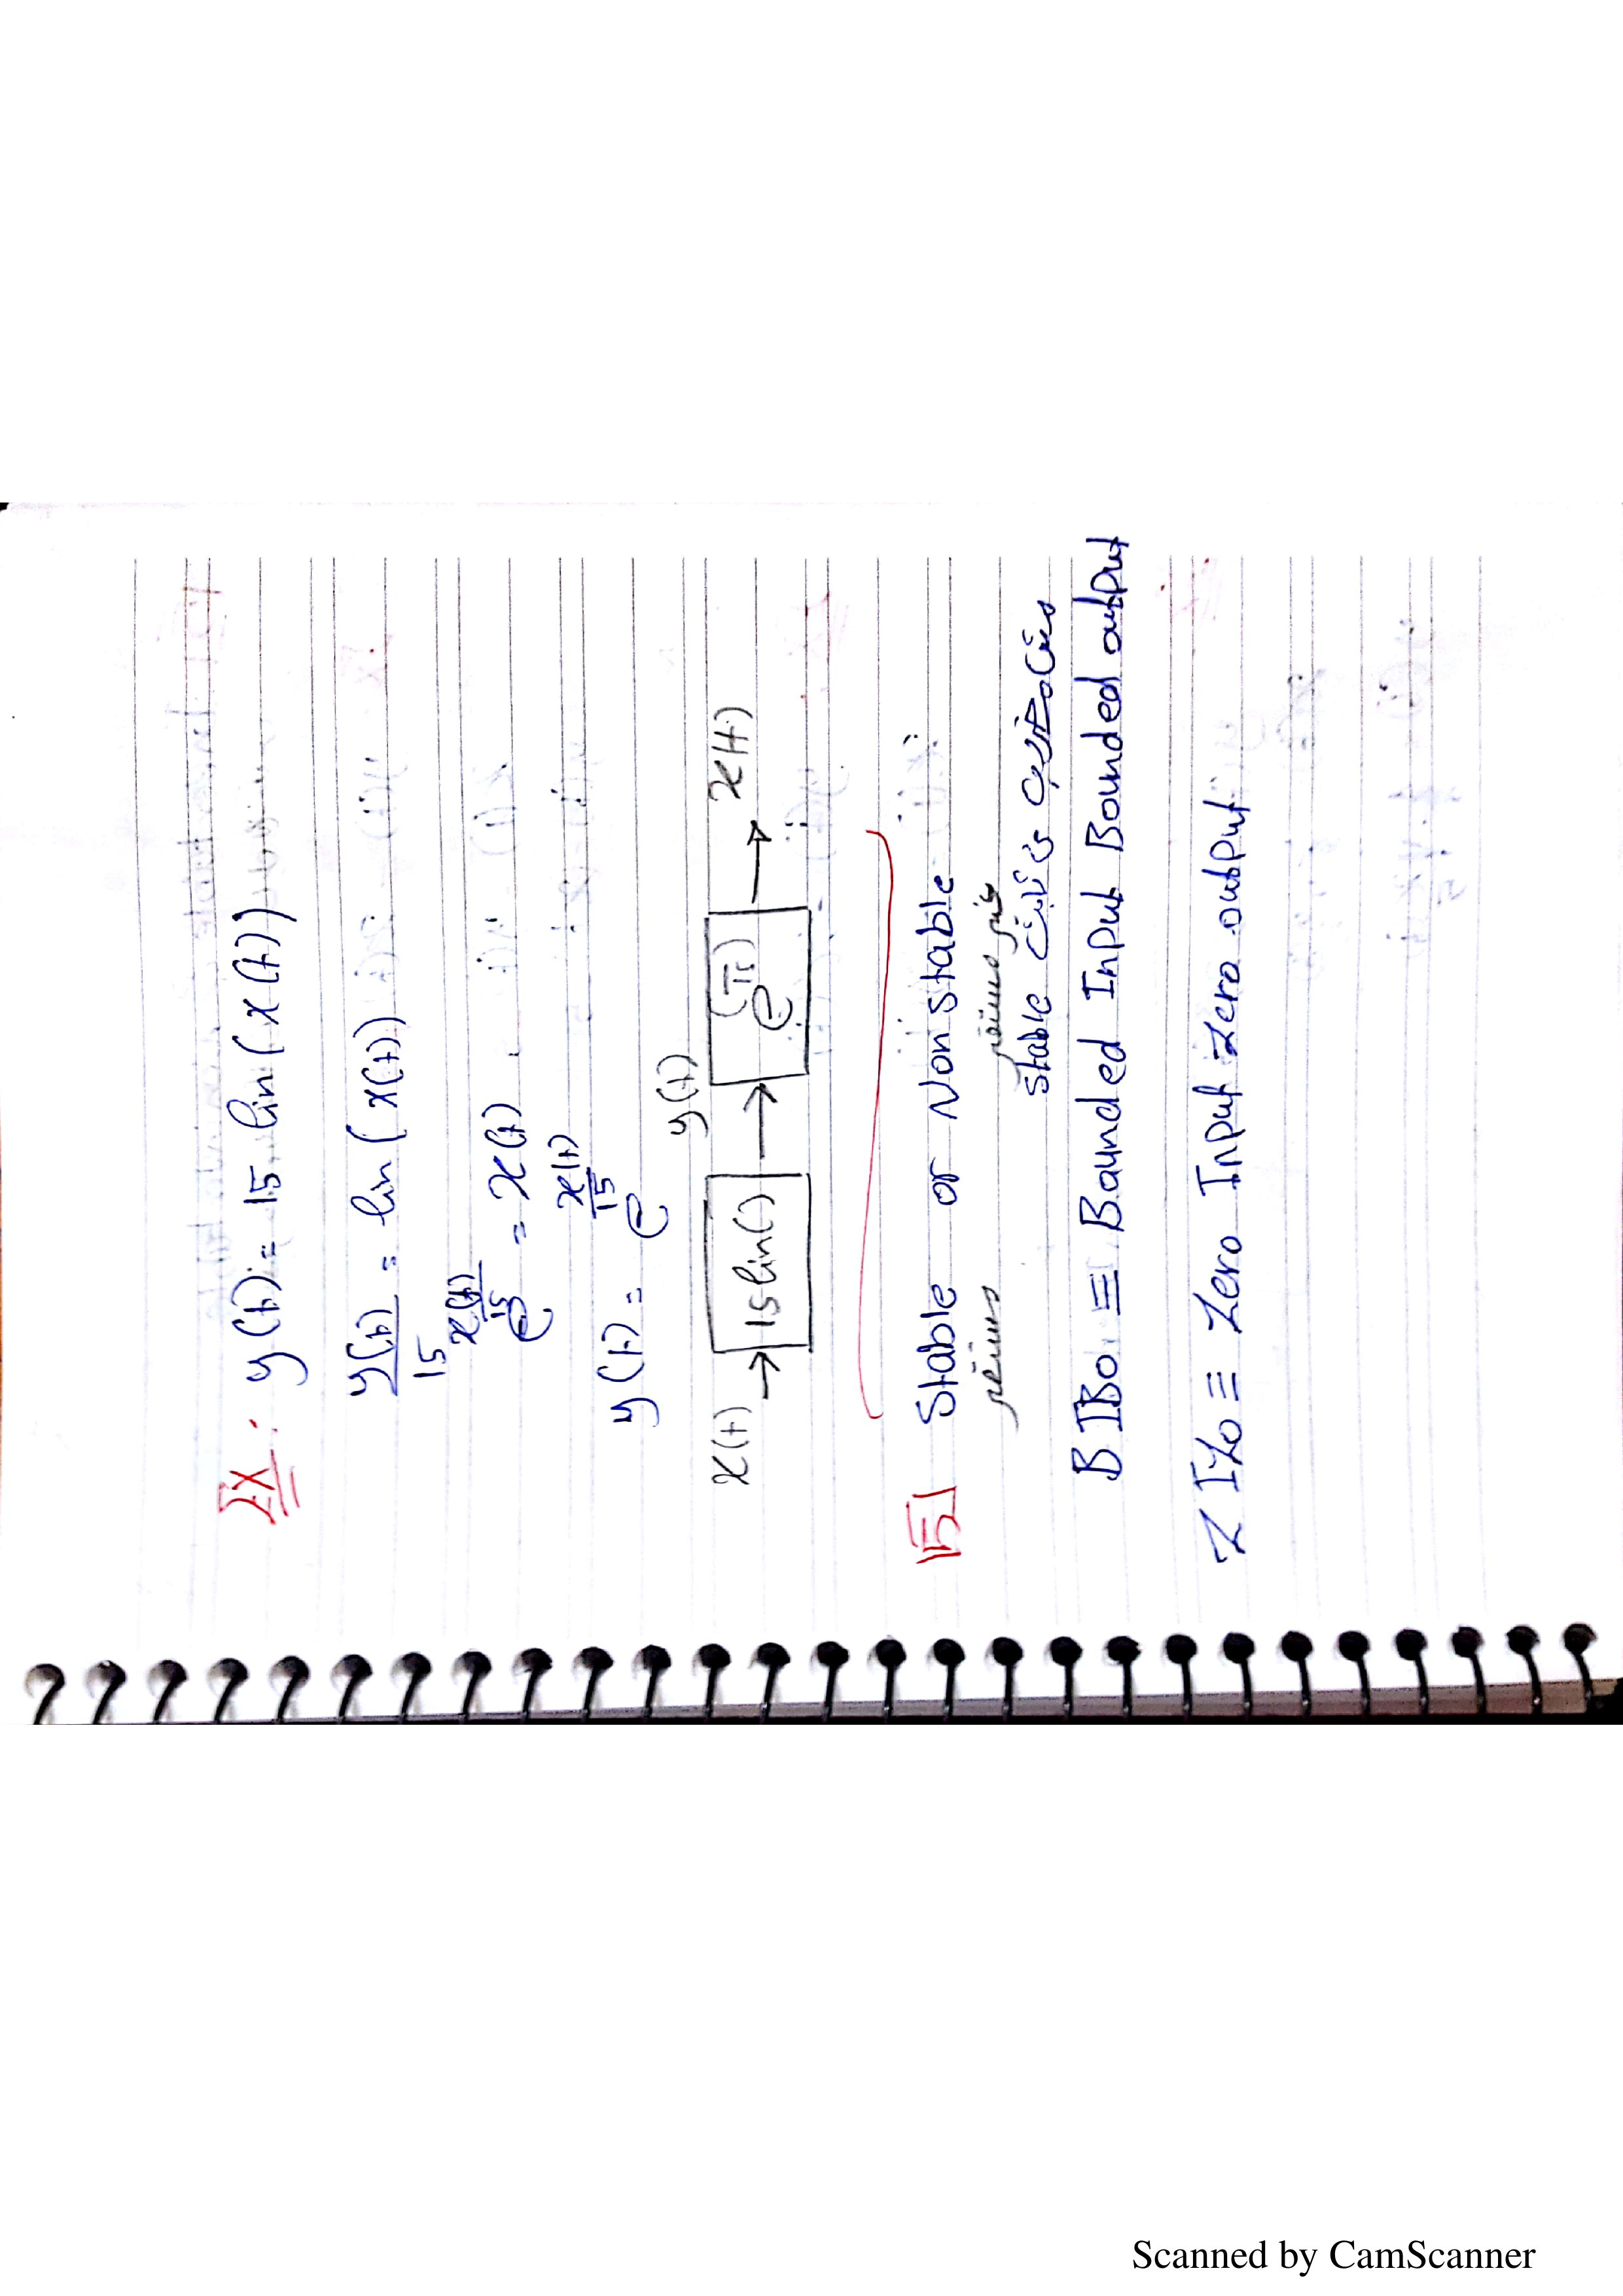 EX: y(t) = 15 lin(x(t))
y(t)/15 = lin(x(t))
e^(x(t)/15) = x(t)
y(t) = e^(x(t)/15)
x(t) → 15 lin() → y(t) → → x(t)
5 Stable or Non stable
مستقر غير مستقر
stable
BIBO ≡ Baunded Input Bounded output
ZIZO ≡ Zero Input Zero output
Scanned by CamScanner